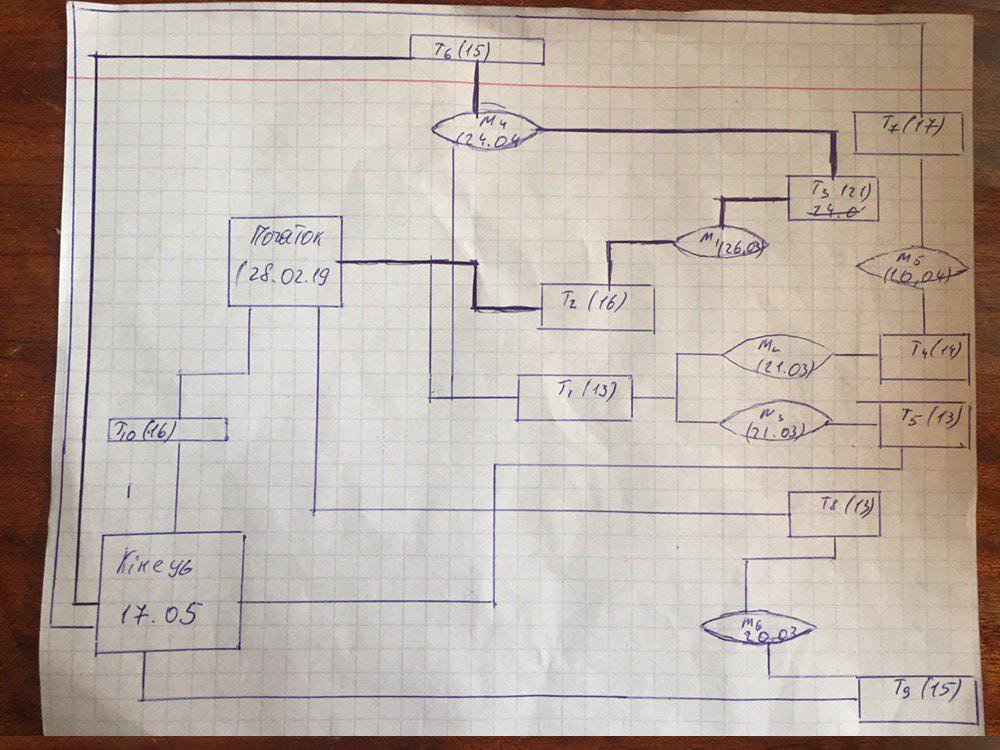 T6 (15)
M4
(24.04
T7 (17)
T3 (21)
24.0
Початок
(28.02.19
M1 (26.03)
M5
(10.04)
T2 (16)
M2
(21.03)
T4 (14)
T1 (13)
M3
(21.03)
T5 (13)
T10 (16)
T8 (13)
Кінець
17.05
M6
20.03
T9 (15)